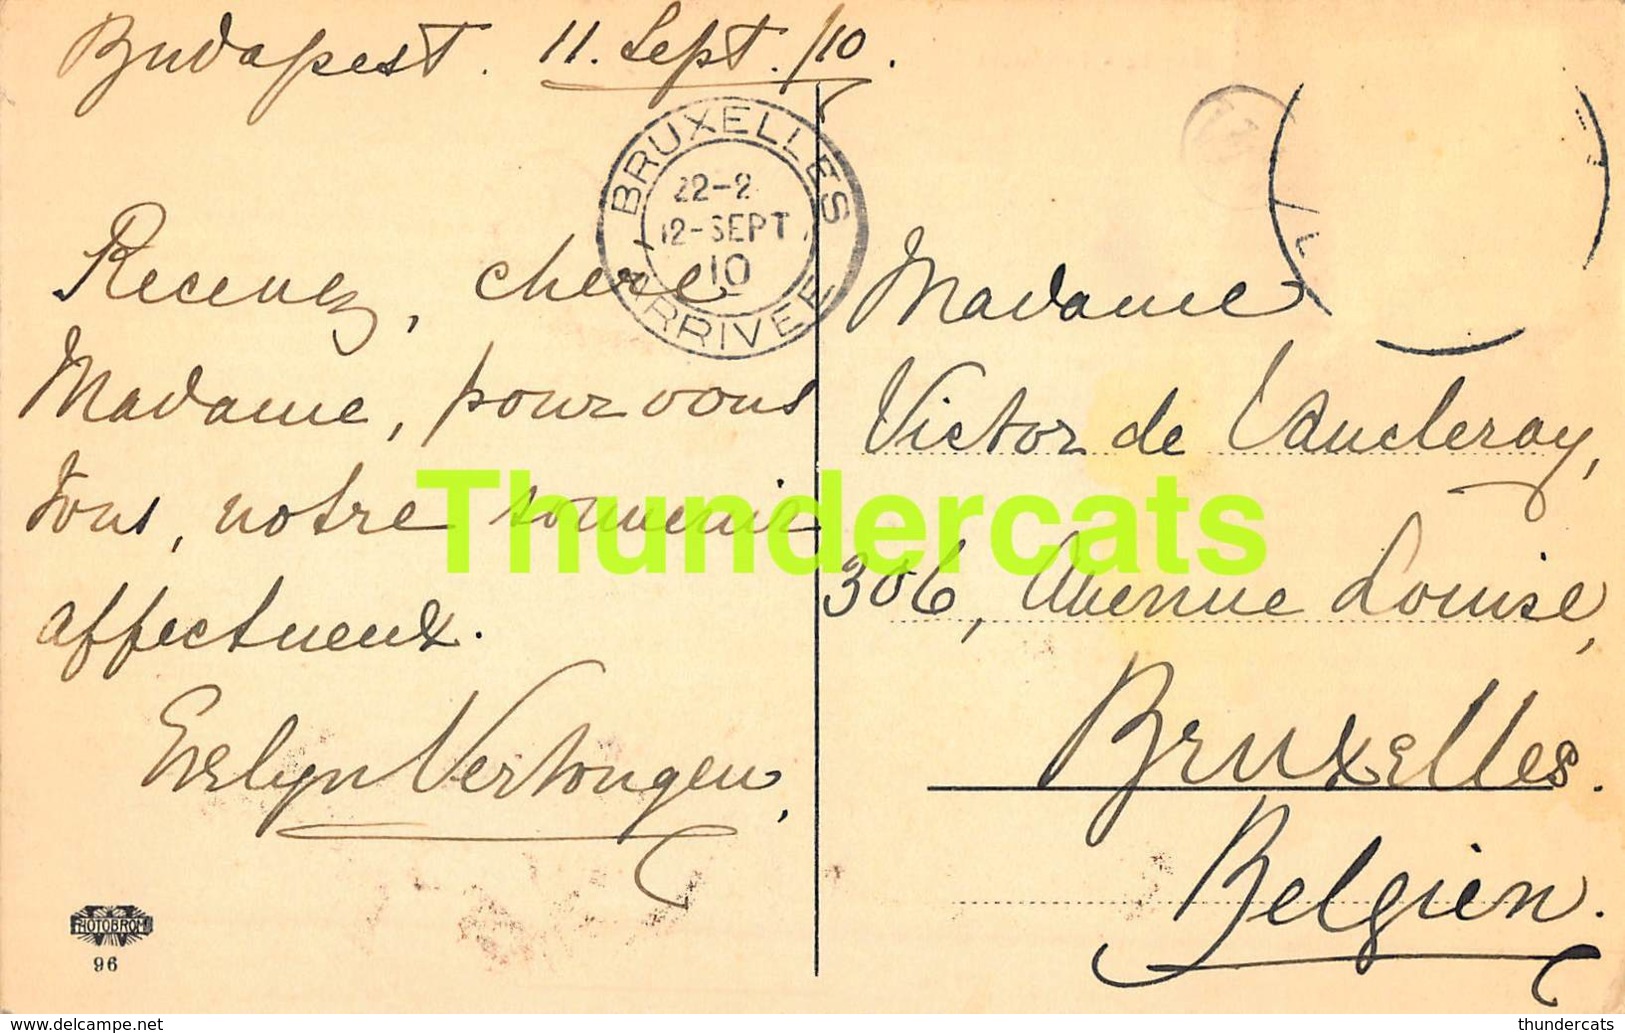 Budapest. 11. Sept. /10.
BRUXELLES
22-2
12-SEPT
10
ARRIVEE
Recevez, chere
Madame, pour vous
tous, notre souvenir
affectueux.
Evelyn Vertongen,
Madame
Victor de
306, Avenue Louise,
Bruxelles.
Belgien.
Thundercats
PHOTOBROM
96
www.delcampe.net
thundercats